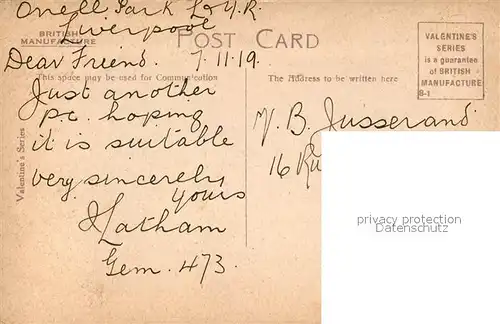 Orrell Park L&Y.R.
Liverpool
BRITISH MANUFACTURE
POST CARD
Dear Friend. 7.11.19.
This space may be used for Communication
The Address to be written here
VALENTINE'S
SERIES
is a guarantee
of BRITISH
MANUFACTURE
B-1
Just another
pc. hoping
it is suitable
very sincerely
yours
Latham
Gem. 473.
Valentine's Series
B. Jusserand
16 Ru
privacy protection
Datenschutz